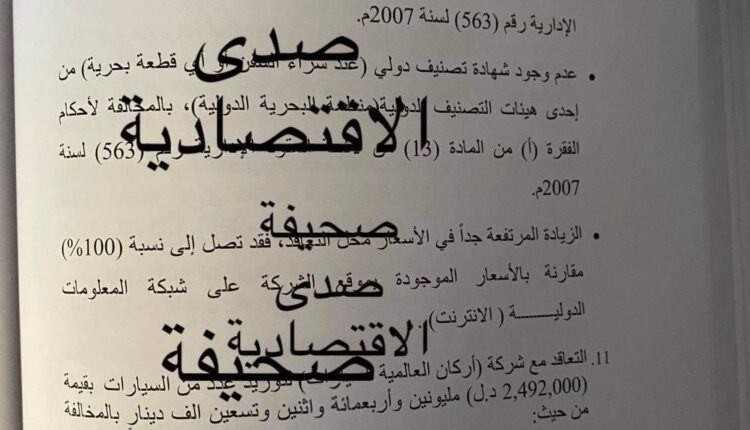 الإدارية رقم (563) لسنة 2007م.
• عدم وجود شهادة تصنيف دولي (عند شراء السفن أو أي قطعة بحرية) من
إحدى هيئات التصنيف الدولية(منظمة البحرية الدولية)، بالمخالفة لأحكام
الفقرة (أ) من المادة (13) من الإدارية رقم (563) لسنة
2007م.
• الزيادة المرتفعة جداً في الأسعار محل التعاقد، فقد تصل إلى نسبة (100%)
مقارنة بالأسعار الموجودة بموقع الشركة على شبكة المعلومات
الدوليـــــــة ( الانترنت) .
11. التعاقد مع شركة (أركان العالمية لتوريد عدد من السيارات بقيمة
(2,492,000 د.ل) مليونين وأربعمائة واثنين وتسعين الف دينار بالمخالفة
من حيث:
صدى
الاقتصادية
صحيفة
صدى
الاقتصادية
صحيفة